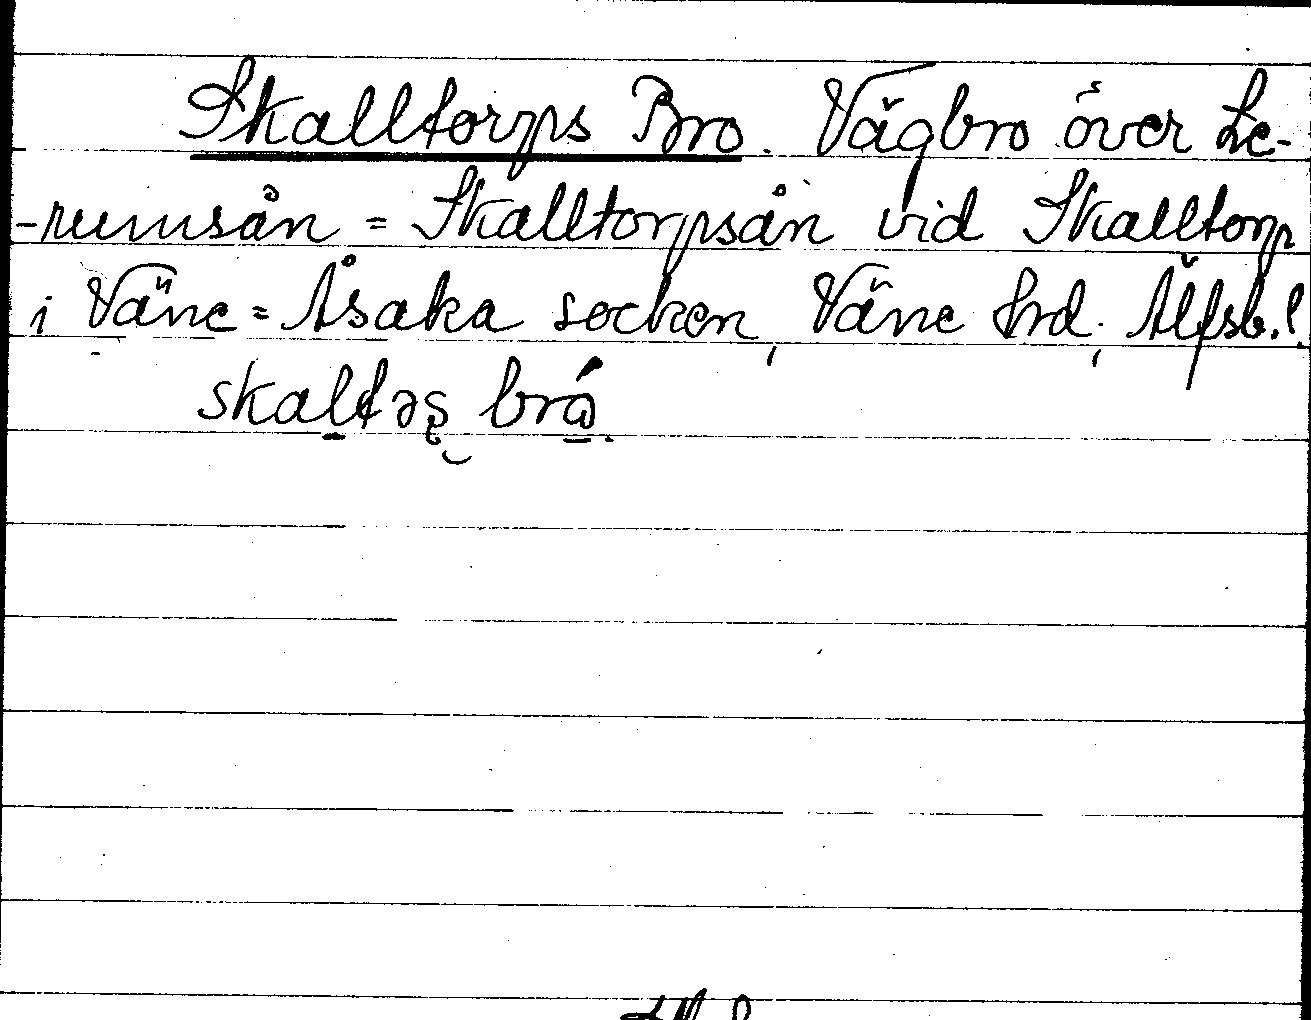 Skalltorps Bro. Vägbro över Le-
-rumsån = Skalltorpsån vid Skalltorp
i Väne = Åsaka socken, Väne hrd, Älfsb. l.
skaltəs brå.